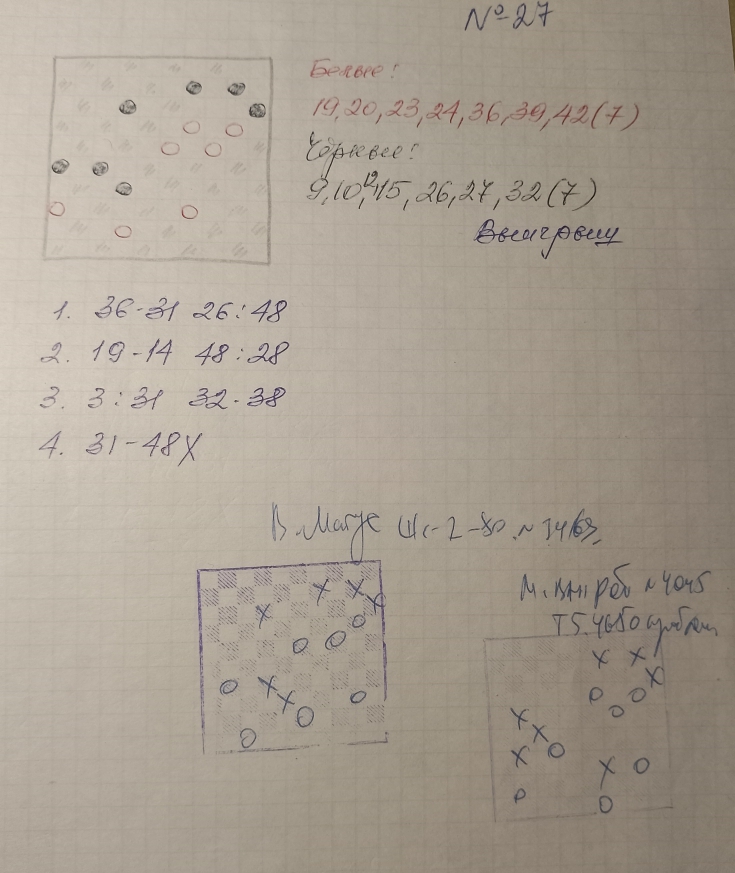 № 27
Белые:
19, 20, 23, 24, 36, 39, 42 (7)
Чёрные:
9, 10, 12, 15, 26, 27, 32 (7)
Выигрыш
1. 36-31 26:48
2. 19-14 48:28
3. 3:31 32-38
4. 31-48X
В. Матус
М. № 4045